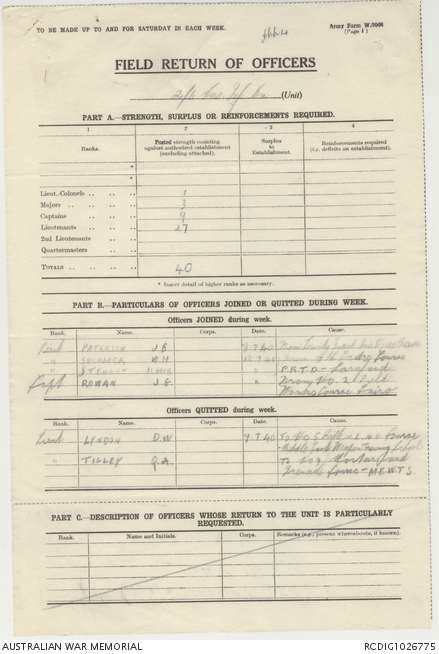 TO BE MADE UP TO AND FOR SATURDAY IN EACH WEEK.
Army Form W.3008
(Page 1)
FIELD RETURN OF OFFICERS
Inf Bn (Unit)
PART A.—STRENGTH, SURPLUS OR REINFORCEMENTS REQUIRED.
1 2 3 4
Ranks. Posted strength counting against authorized establishment (excluding attached). Surplus to Establishment. Reinforcements required (i.e. deficits on establishment).
*
*
Lieut.-Colonels .. .. .. 1
Majors .. .. .. .. 3
Captains .. .. .. 9
Lieutenants .. .. .. 27
2nd Lieutenants .. ..
Quartermasters .. ..
TOTALS .. .. .. .. 40
* Insert detail of higher ranks as necessary.
PART B.—PARTICULARS OF OFFICERS JOINED OR QUITTED DURING WEEK.
Officers JOINED during week.
Rank. Name. Corps. Date. Cause.
Lieut PATERSON
"
"
Capt ROWAN J.G. " Field
Works Course Cairo
Officers QUITTED during week.
Rank. Name. Corps. Date. Cause.
Lieut LYNDON D.W 9.7.40 To No 5 Course
Middle East Weapon Training School
" TILLEY To Mortar and
Grenade Course - M.E.W.T.S.
PART C.—DESCRIPTION OF OFFICERS WHOSE RETURN TO THE UNIT IS PARTICULARLY REQUESTED.
Rank. Name and Initials. Corps. Remarks (e.g., present whereabouts, if known).
AUSTRALIAN WAR MEMORIAL RCDIG1026775